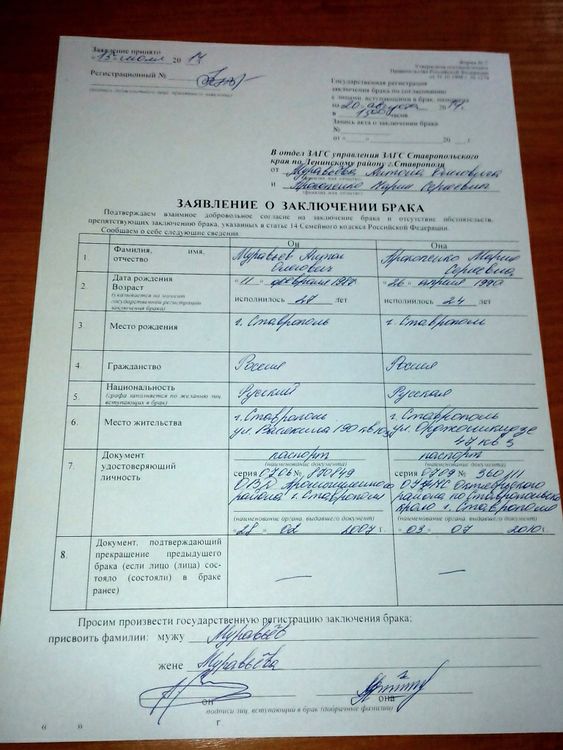 Заявление принято
"15" июля 20 14
Регистрационный №
Форма № 7
Утверждена постановлением
Правительства Российской Федерации
от 31.10.1998 г. № 1274
Государственная регистрация
заключения брака по согласованию
с лицами, вступающими в брак, назначена
на 20 августа 2014
в часов
Запись акта о заключении брака
№
от " " 20 г.
В отдел ЗАГС управления ЗАГС Ставропольского
края по Ленинскому району г.Ставрополя
от Муравьёва Антона Олеговича
и Прокопенко Марии Сергеевны
ЗАЯВЛЕНИЕ О ЗАКЛЮЧЕНИИ БРАКА
Подтверждаем взаимное добровольное согласие на заключение брака и отсутствие обстоятельств,
препятствующих заключению брака, указанных в статье 14 Семейного кодекса Российской Федерации.
Сообщаем о себе следующие сведения:
Он Она
1. Фамилия, имя, отчество
Муравьев Антон Олегович
Прокопенко Мария Сергеевна
2. Дата рождения
Возраст
(указывается на момент
государственной регистрации
заключения брака)
"11" февраля
исполнилось 27 лет
"26" апреля 1990
исполнилось 24 лет
3 Место рождения
г. Ставрополь
г. Ставрополь
4. Гражданство
Россия
Россия
5. Национальность
(графа заполняется по желанию лиц,
вступающих в брак)
Русский
Русская
6. Место жительства
г. Ставрополь
г. Ставрополь
ул. Орджоникидзе
47 кв 5
7. Документ
удостоверяющий
личность
паспорт
(наименование документа)
серия 0706 №
ОВД Промышленного
района г. Ставрополя
(наименование органа, выдавшего документ)
"28" 02 2007 г.
паспорт
(наименование документа)
серия 0709 № 560111
ОУФМС Октябрьского
района по Ставропольскому
краю г. Ставрополя
(наименование органа, выдавшего документ)
"03" 07 2010г.
8. Документ, подтверждающий
прекращение предыдущего
брака (если лицо (лица) сос-
тояло (состояли) в браке
ранее)
—
—
Просим произвести государственную регистрацию заключения брака;
присвоить фамилии: мужу Муравьёв
жене Муравьёва
он она
подписи лиц, вступающих в брак (добрачные фамилии)
" " г